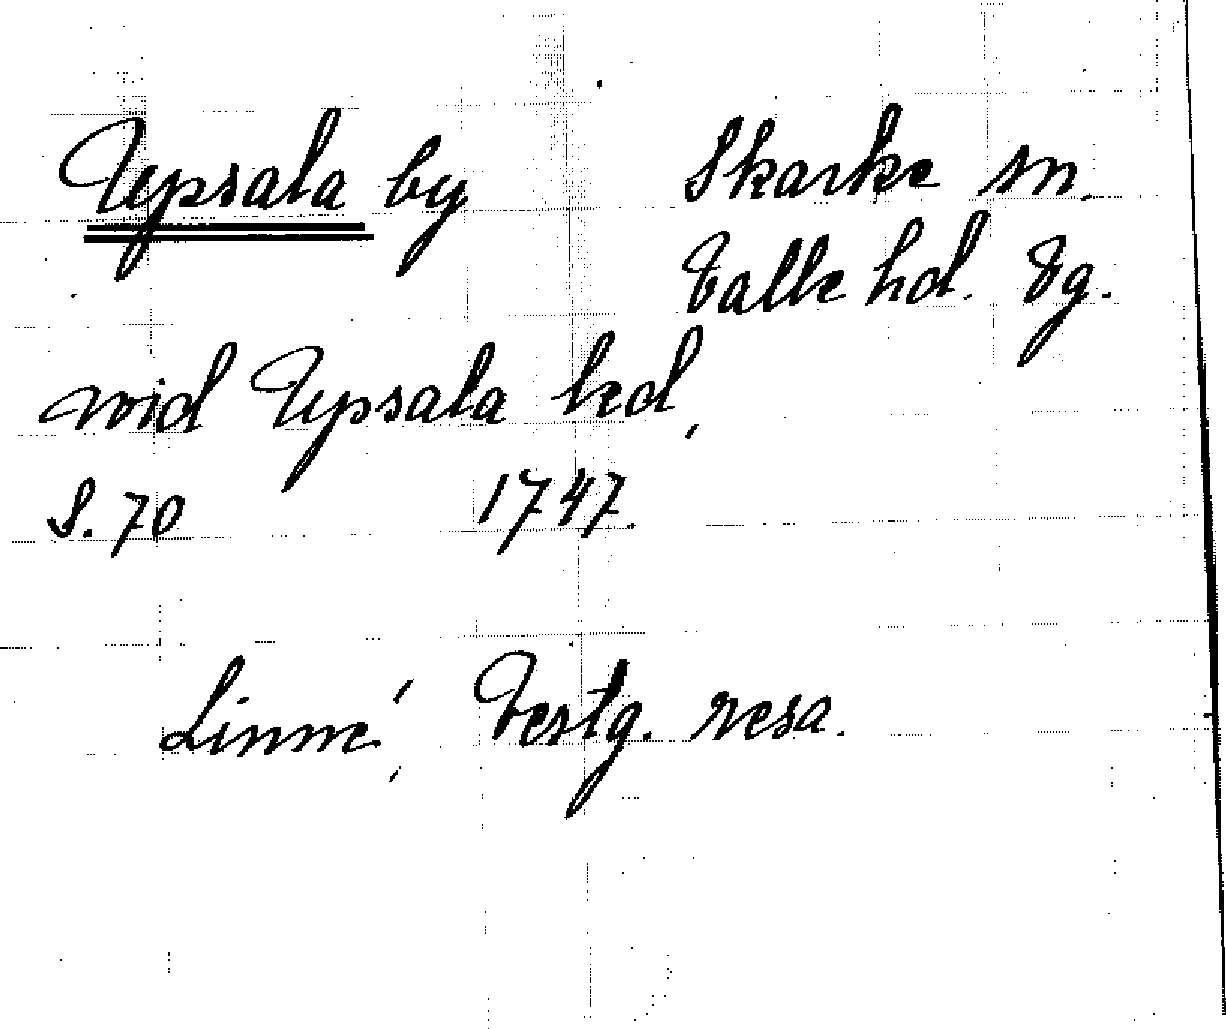 Upsala by
Skarke sn.
Valle hd. Vg.
wid Upsala hed,
S. 70 1747.
Linné, Vestg. resa.